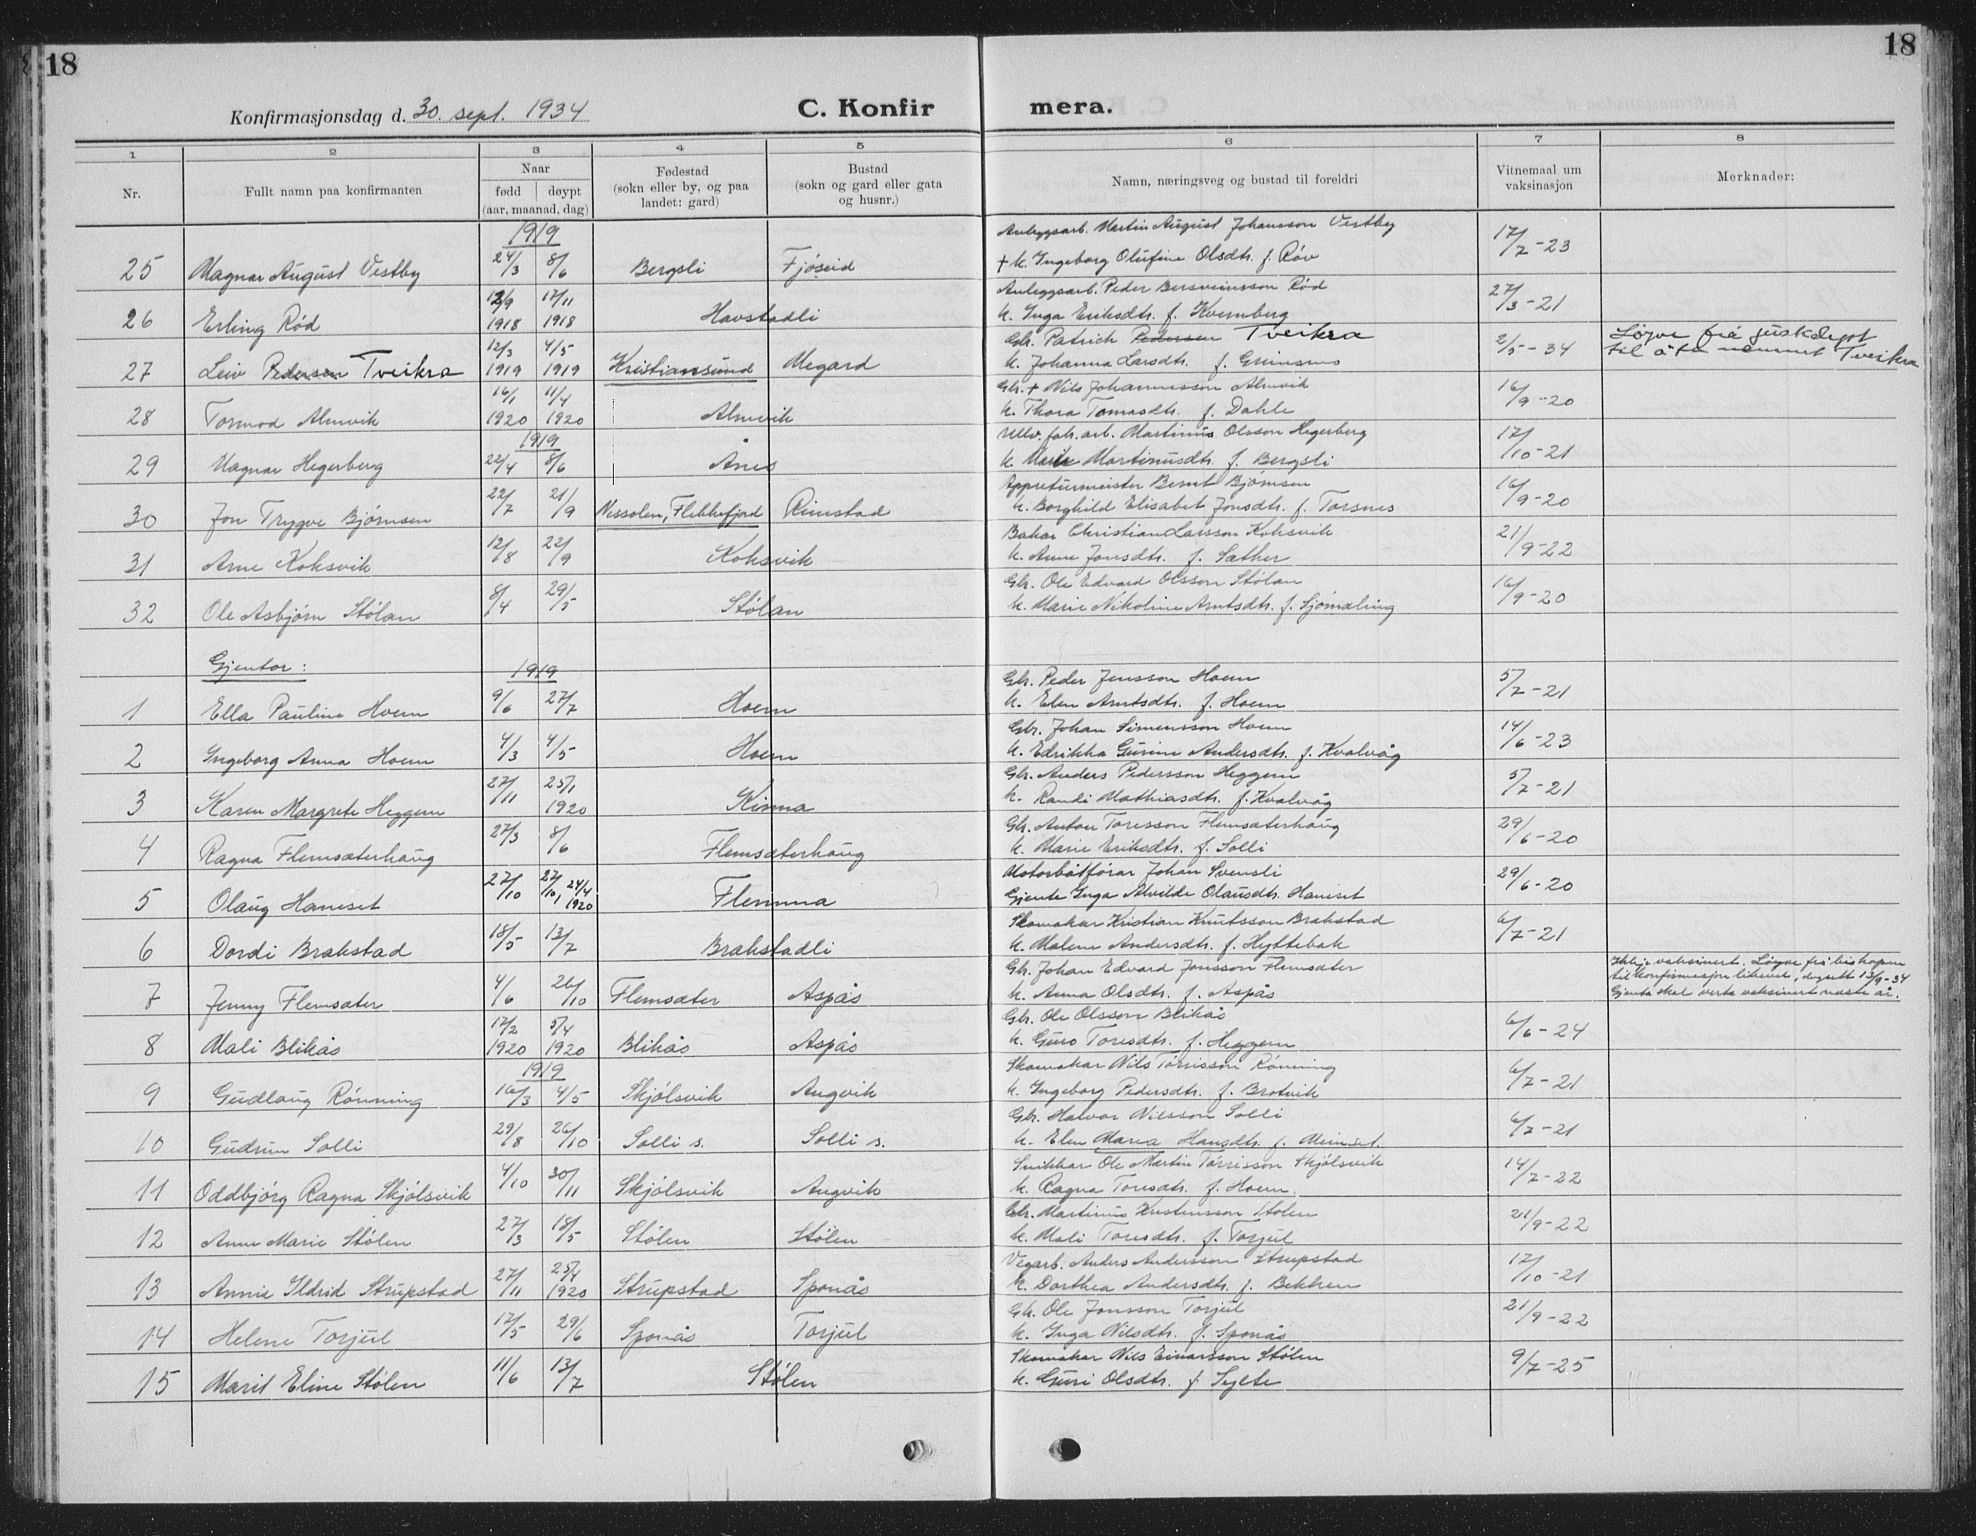 18
18
Konfirmasjonsdag d. 30. sept. 1934
C. Konfir mera.
1 2 3 4 5 6 7 8
Nr. Fullt namn paa konfirmanten Naar fødd døypt (aar, maanad, dag) Fødestad (sokn eller by, og paa landet: gard) Bustad (sokn og gard eller gata og husnr.) Namn, næringsveg og bustad til foreldri Vitnemaal um vaksinasjon Merknader:
1919
Anleggsarb. Martin August Johansson Vestby
25 Magnar August Vestby 24/3 8/6 Bergsli Fjøseid + k. Ingeborg Olufine Olsdtr. f. Röv 17/7-23
Anleggsarb. Peder Bersveinsson Röd
26 Erling Röd 12/9 1918 17/11 1918 Havstadli k. Inga Eriksdtr. f. Kvernberg 27/3-21
Gbr. Patrick Pedersen Tveikra
27 Leiv Pedersen Tveikra 12/3 1919 4/5 1919 Kristiansund Megard k. Johanna Larsdtr. f. Grimsmo 2/5-34 Löyve frå justisdept til å ta namnet Tveikra
Gbr. + Nils Johannesson Almvik
28 Tormod Almvik 16/1 1920 11/4 1920 Almvik k. Thora Tomasdtr. f. Dahle 16/9-20
1919
Ullv. fabr. arb. Martinus Olsson Hegerberg
29 Magnar Hegerberg 22/4 8/6 Ånes k. Marie Martinusdtr. f. Bergsli 17/10-21
Appreturmeister Bernt Bjørnsen
30 Jon Trygve Bjørnsen 22/7 21/9 Nessolen, Flekkefjord Rimstad k. Borghild Elisabet Jonsdtr. f. Torsnes 16/9-20
Bakar Christian Larsson Koksvik
31 Arne Koksvik 12/8 22/9 Koksvik k. Anne Jonsdtr. f. Sæther 21/9-22
Gbr. Ole Edvard Olsson Stölan
32 Ole Asbjörn Stölan 8/4 29/5 Stölan k. Marie Nikoline Arntsdtr. f. Sjömæling 16/9-20
Gjentor:
1919
Gbr. Peder Jensson Hoem
1 Ella Pauline Hoem 9/6 27/7 Hoem k. Elen Arntsdtr. f. Hoem 5/7-21
Gbr. Johan Simensson Hoem
2 Ingeborg Anna Hoem 4/3 4/5 Hoem k. Edrikka Gurine Andersdtr. f. Kvalvåg 14/6-23
Gbr. Anders Pedersson Heggem
3 Karen Margrete Heggem 27/11 25/1 1920 Kinna k. Randi Mathiasdtr. f. Kvalvåg 5/7-21
Gbr. Anton Toresson Flemsæterhaug
4 Ragna Flemsæterhaug 27/3 8/6 Flemsæterhaug k. Marie Eriksdtr. f. Solli 29/6-20
Motorbåtförar Johan Svensli
5 Olaug Haneset 27/10 27/10, 24/4 1920 Flemma Gjente Inga Alvilde Olausdtr. Haneset 29/6-20
Skomakar Kristian Knutsson Brakstad
6 Dordi Brakstad 18/5 13/7 Brakstadli k. Malene Andersdtr. f. Hyttebak 6/7-21
Gbr. Johan Edvard Jonsson Flemsæter
7 Jenny Flemsæter 4/6 26/10 Flemsæter Aspås k. Anna Olsdtr. f. Aspås Ikkje vaksinert. Löyve frå biskopen til konfirmasjon likevel, dagsett 13/9-34 Gjenta skal verta vaksinert næste år.
Gbr. Ole Olsson Blikås
8 Mali Blikås 17/2 1920 5/4 1920 Blikås Aspås k. Guro Toresdtr. f. Heggem 6/6-24
1919
Skomakar Nils Törrisson Rönning
9 Gudlaug Rönning 16/3 4/5 Skjölsvik Angvik k. Ingeborg Pedersdtr. f. Brotvik 6/7-21
Gbr. Halvor Nilsson Solli
10 Gudrun Solli 29/8 26/10 Solli s. Solli s. k. Elen Maria Hansdtr. f. Meinset 6/7-21
Snikkar Ole Martin Törrisson Skjölsvik
11 Oddbjörg Ragna Skjölsvik 4/10 30/11 Skjölsvik Angvik k. Ragna Toresdtr. f. Hoem 14/7-22
Gbr. Martinus Kristensson Stölen
12 Anne Marie Stölen 27/3 18/5 Stölen Stölen k. Mali Toresdtr. f. Torjul 21/9-22
Vegarb. Anders Andersson Strupstad
13 Annie Ildrid Strupstad 27/11 25/4 1920 Strupstad Sponås k. Dorthea Andersdtr. f. Bekken 17/10-21
Gbr. Ole Jonsson Torjul
14 Helene Torjul 17/5 29/6 Sponås Torjul k. Inga Nilsdtr. f. Sponås 21/9-22
Skomakar Nils Einarsson Stölen
15 Marit Eline Stölen 11/6 13/7 Stölen k. Guri Olsdtr. f. Sylte 9/7-25